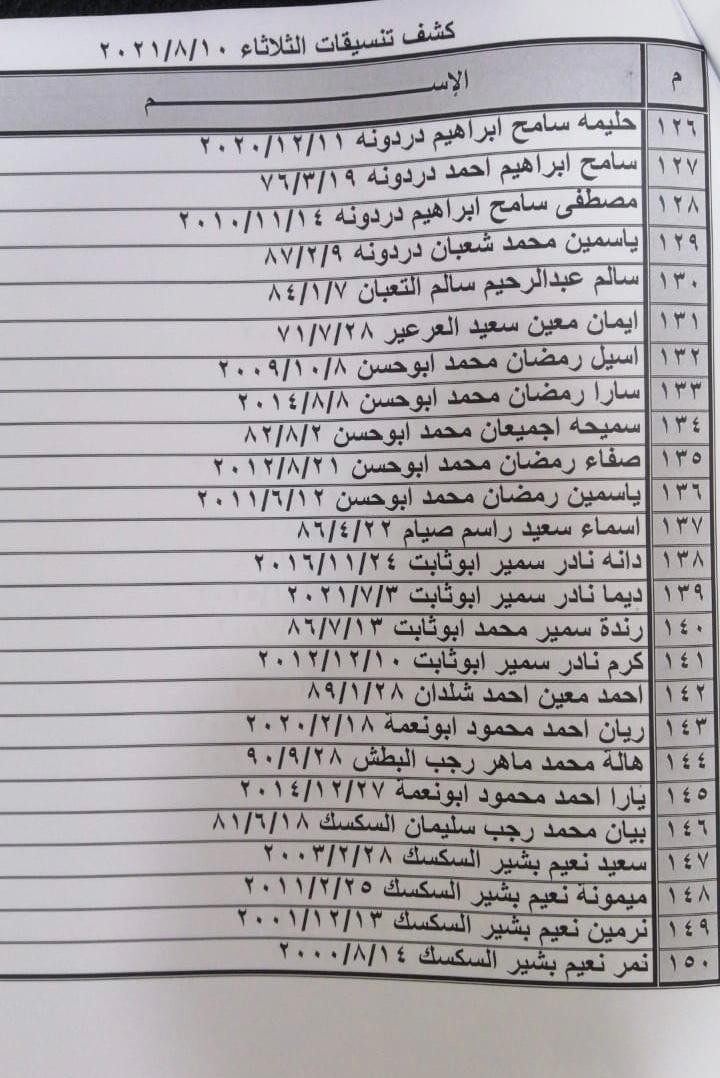 كشف تنسيقات الثلاثاء ٢٠٢١/٨/١٠
م الإســـــــــم
١٢٦ حليمه سامح ابراهيم دردونه ٢٠٢٠/١٢/١١
١٢٧ سامح ابراهيم احمد دردونه ٧٦/٣/١٩
١٢٨ مصطفى سامح ابراهيم دردونه ٢٠١٠/١١/١٤
١٢٩ ياسمين محمد شعبان دردونه ٨٧/٢/٩
١٣٠ سالم عبدالرحيم سالم التعبان ٨٤/١/٧
١٣١ ايمان معين سعيد العرعير ٧١/٧/٢٨
١٣٢ اسيل رمضان محمد ابوحسن ٢٠٠٩/١٠/٨
١٣٣ سارا رمضان محمد ابوحسن ٢٠١٤/٨/٨
١٣٤ سميحه اجميعان محمد ابوحسن ٨٢/٨/٢
١٣٥ صفاء رمضان محمد ابوحسن ٢٠١٢/٨/٢١
١٣٦ ياسمين رمضان محمد ابوحسن ٢٠١١/٦/١٢
١٣٧ اسماء سعيد راسم صيام ٨٦/٤/٢٢
١٣٨ دانه نادر سمير ابوثابت ٢٠١٦/١١/٢٤
١٣٩ ديما نادر سمير ابوثابت ٢٠٢١/٧/٣
١٤٠ رندة سمير محمد ابوثابت ٨٦/٧/١٣
١٤١ كرم نادر سمير ابوثابت ٢٠١٢/١٢/١٠
١٤٢ احمد معين احمد شلدان ٨٩/١/٢٨
١٤٣ ريان احمد محمود ابونعمة ٢٠٢٠/٢/١٨
١٤٤ هالة محمد ماهر رجب البطش ٩٠/٩/٢٨
١٤٥ يارا احمد محمود ابونعمة ٢٠١٤/١٢/٢٧
١٤٦ بيان محمد رجب سليمان السكسك ٨١/٦/١٨
١٤٧ سعيد نعيم بشير السكسك ٢٠٠٣/٢/٢٨
١٤٨ ميمونة نعيم بشير السكسك ٢٠١١/٢/٢٥
١٤٩ نرمين نعيم بشير السكسك ٢٠٠١/١٢/١٣
١٥٠ نمر نعيم بشير السكسك ٢٠٠٠/٨/١٤